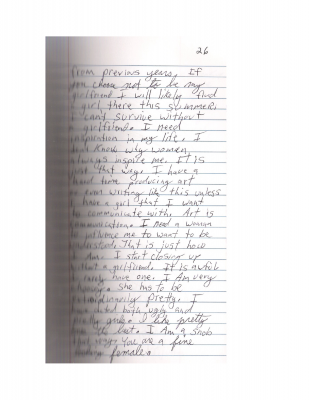 26
from previous years. If
you choose not to be my
girlfriend I will likely find
a girl there this summer.
I can't survive without
a girlfriend. I need
inspiration in my life. I
don't know why women
always inspire me. It is
just that way. I have a
hard time producing art
or even writing like this unless
I have a girl that I want
to communicate with. Art is
communication. I need a woman
to influence me to want to be
understood. That is just how
I Am. I start closing up
without a girlfriend. It is awful
to have one. I Am very
She has to be
extraordinarily pretty. I
have dated both ugly and
pretty girls. I like pretty
the best. I Am a snob
that way. You are a fine
looking female.